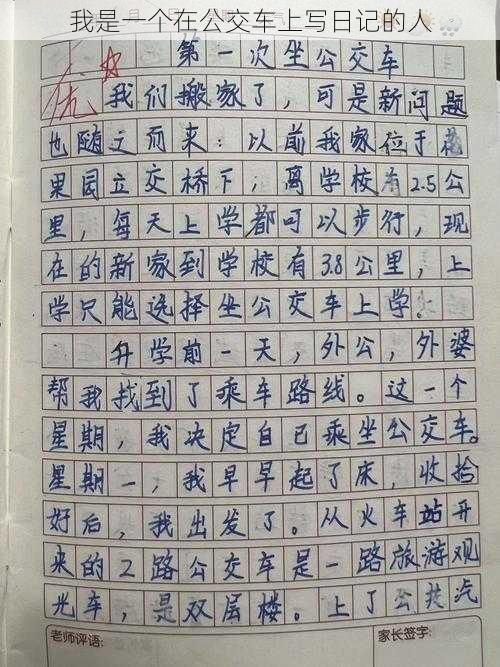 我是一个在公交车上写日记的人
优
第一次坐公交车
我们搬家了，可是新问题
也随之而来：以前我家位于花
果园立交桥下，离学校有2.5公
里，每天上学都可以步行，现
在的新家到学校有3.8公里，上
学只能选择坐公交车上学。
升学前一天，外公，外婆
帮我找到了乘车路线。这一个
星期，我决定自己乘坐公交车。
星期一，我早早起了床，收拾
好后，我出发了。从火车站开
来的2路公交车是一路旅游观
光车，是双层楼。上了公共汽
老师评语：
家长签字：